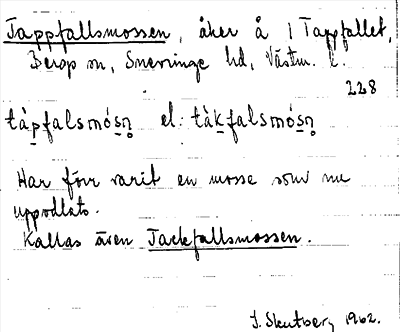 Tappfallsmossen, åker å 1 Tappfallet,
Bergs sn, Snevringe hd, Västm. l.
228
tàp̲falsmós̲n̥ el. tàk̲falsmós̲n̥
Har förr varit en mosse som nu
uppodlats.
Kallas även Tackfallsmossen.
1962.